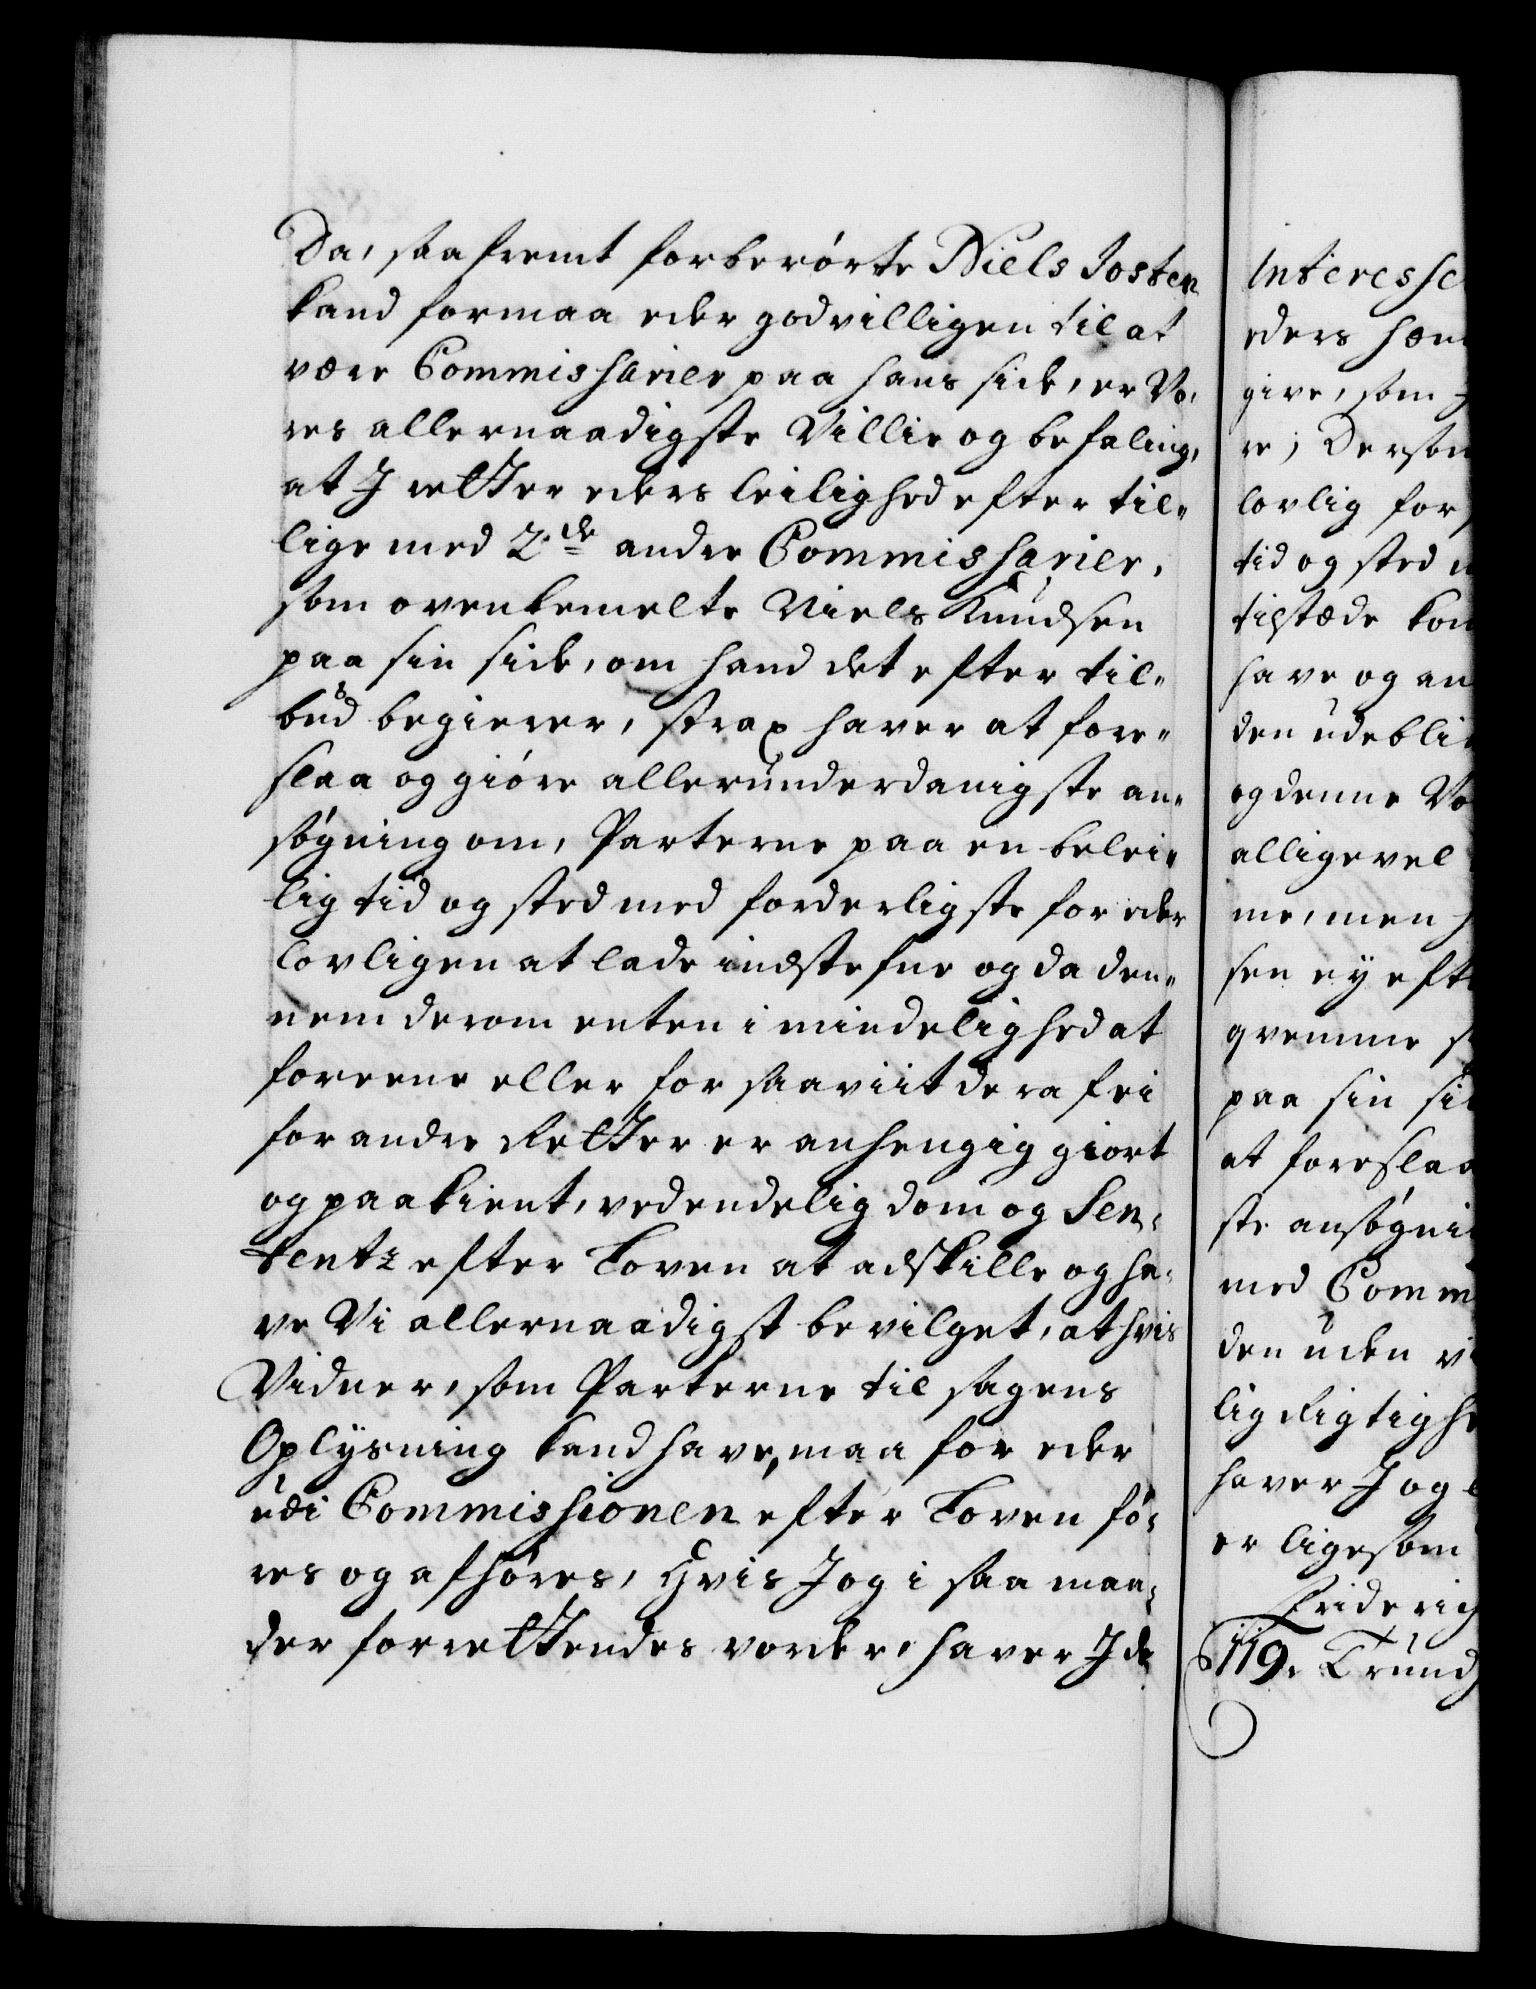 Da, saafremt forberørte Niels Josten
kand formaa eder godvilligen til at
være Commissarier paa hans side, er Vo,
res allernaadigste Villie og befaling,
at J retter eders leilighed efter til„
lige med 2de andre Commissarier,
som ovenbemelte Niels Knudsen
paa sin side, om hand det efter til„
bud begierer, strax haver at fore„
slaa og giøre allerunderdanigste an„
søgning om, Parterne paa en belei„
lig tid og sted med forderligste for eder
lovligen at lade indstefne og da den„
nem derom enten i mindelighed at
foreene eller for saaviit dera fri
for andre Retter er anhengig giort
og paakient, ved endelig dom og Sen„
tentz efter Loven at adskille og ha„
ve Vi allernaadigst bevilget, at hvis
Vidner, som Parterne til sagens
Oplysning kand have, maa for eder
udi Commissionen efter Loven fø„
res og afhøres, Hvis J og i saa maa„
der forrettendes vorder, haver J de
Interesse
eders hæn
give, som
re; Derson
lovlig for
tid og sted
tilstæde kom
have og an
den udebli
og denne Vo
alligevel
me, men
sen ey eft
qvemme
paa sin si
at foreslaa
ste ansøgni
med Comm
den uden vi
lig Rigtighe
haver J og
er ligesom
Friderich
119. Trund